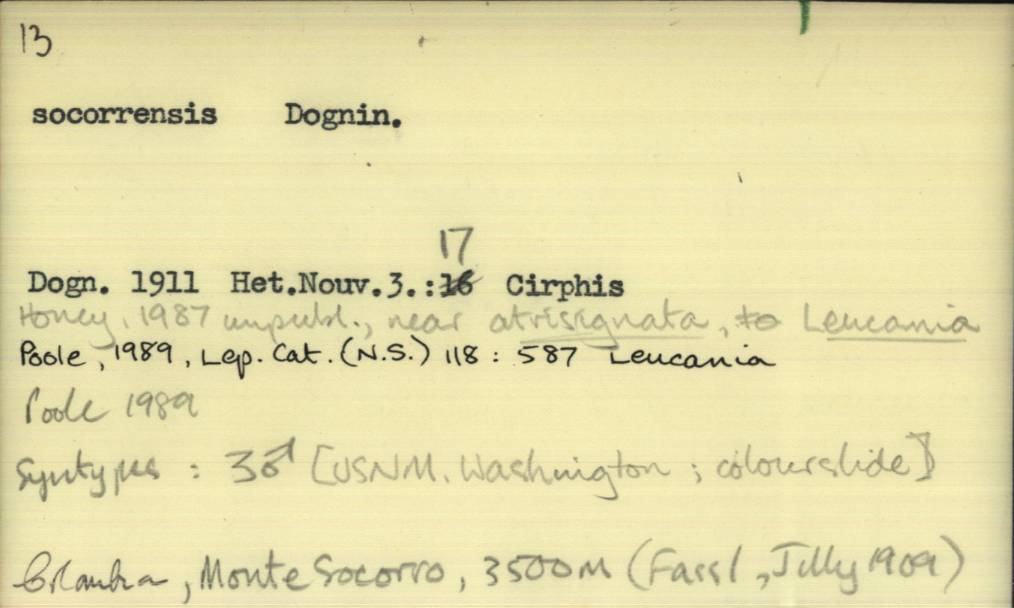 13
socorrensis Dognin.
17
Dogn. 1911 Het.Nouv.3.:16 Cirphis
Honey, 1987 unpubl., near atrisignata, to Leucania
Poole, 1989, Lep. Cat. (N.S.) 118 : 587 Leucania
Poole 1989
Syntypes : 3♂ [USNM. Washington ; colourslide]
Colombia, Monte Socorro, 3500m (Fassl, Jully 1909)